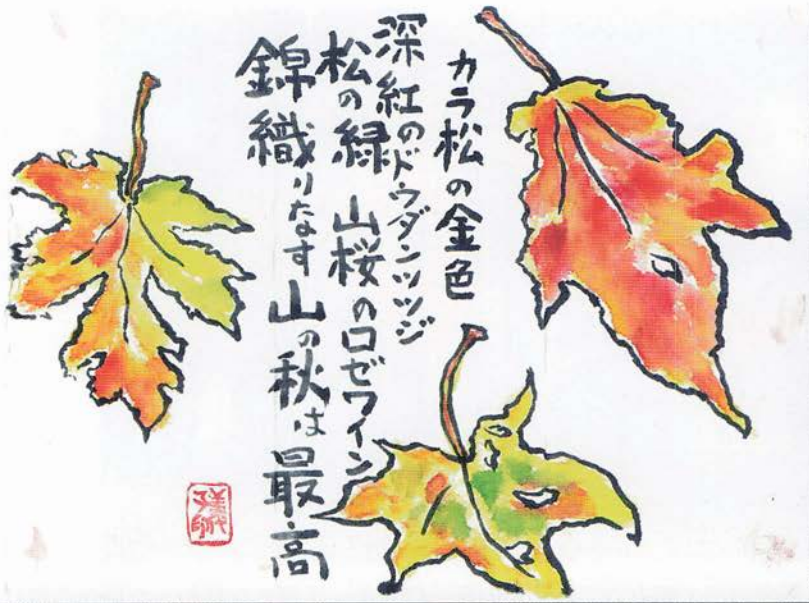 カラ松の金色
深紅のドウダンツツジ
松の緑 山桜のロゼワイン
錦織りなす山の秋は最高